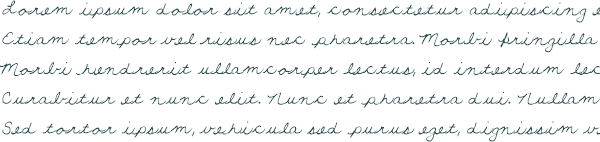 Lorem ipsum dolor sit amet, consectetur adipiscing
Etiam tempor vel risus nec pharetra. Morbi fringilla
Morbi hendrerit ullamcorper lectus, id interdum lec
Curabitur et nunc elit. Nunc et pharetra dui. Nullam
Sed tortor ipsum, vehicula sed purus eget, dignissim v